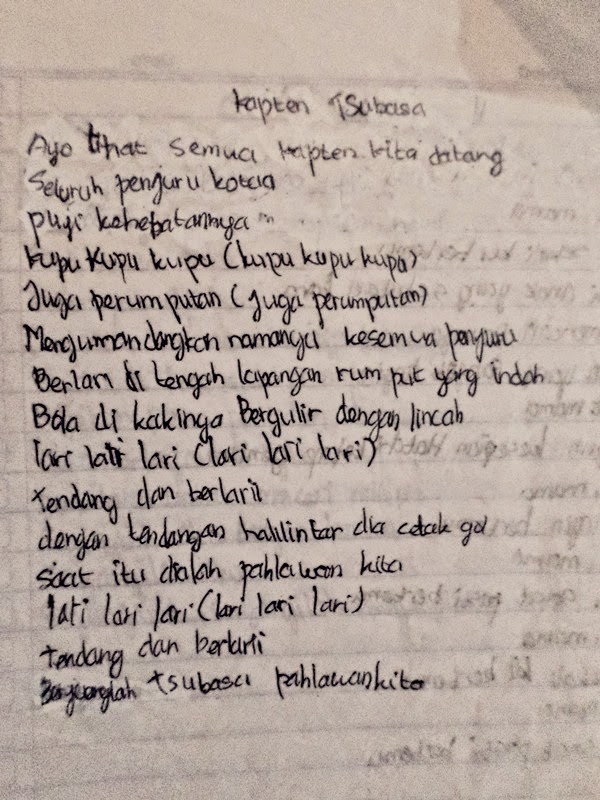 Kapten TSubasa
Ayo lihat Semua kapten kita datang
Seluruh penguru kota
puji kehebatannya
kupu kupu kupu (kupu kupu kupu)
Juga perumputan (Juga perumputan)
Mengumandangkan namanya kesemua penguru
Berlari di tengah lapangan rumput yang indah
Bola di kakinya Bergulir dengan lincah
lari lari lari (lari lari lari)
tendang dan berlari
dengan tendangan halilintar dia cetak gol
saat itu dialah pahlawan kita
lari lari lari (lari lari lari)
tendang dan berlari
Berjuanglah tsubasa pahlawan kita